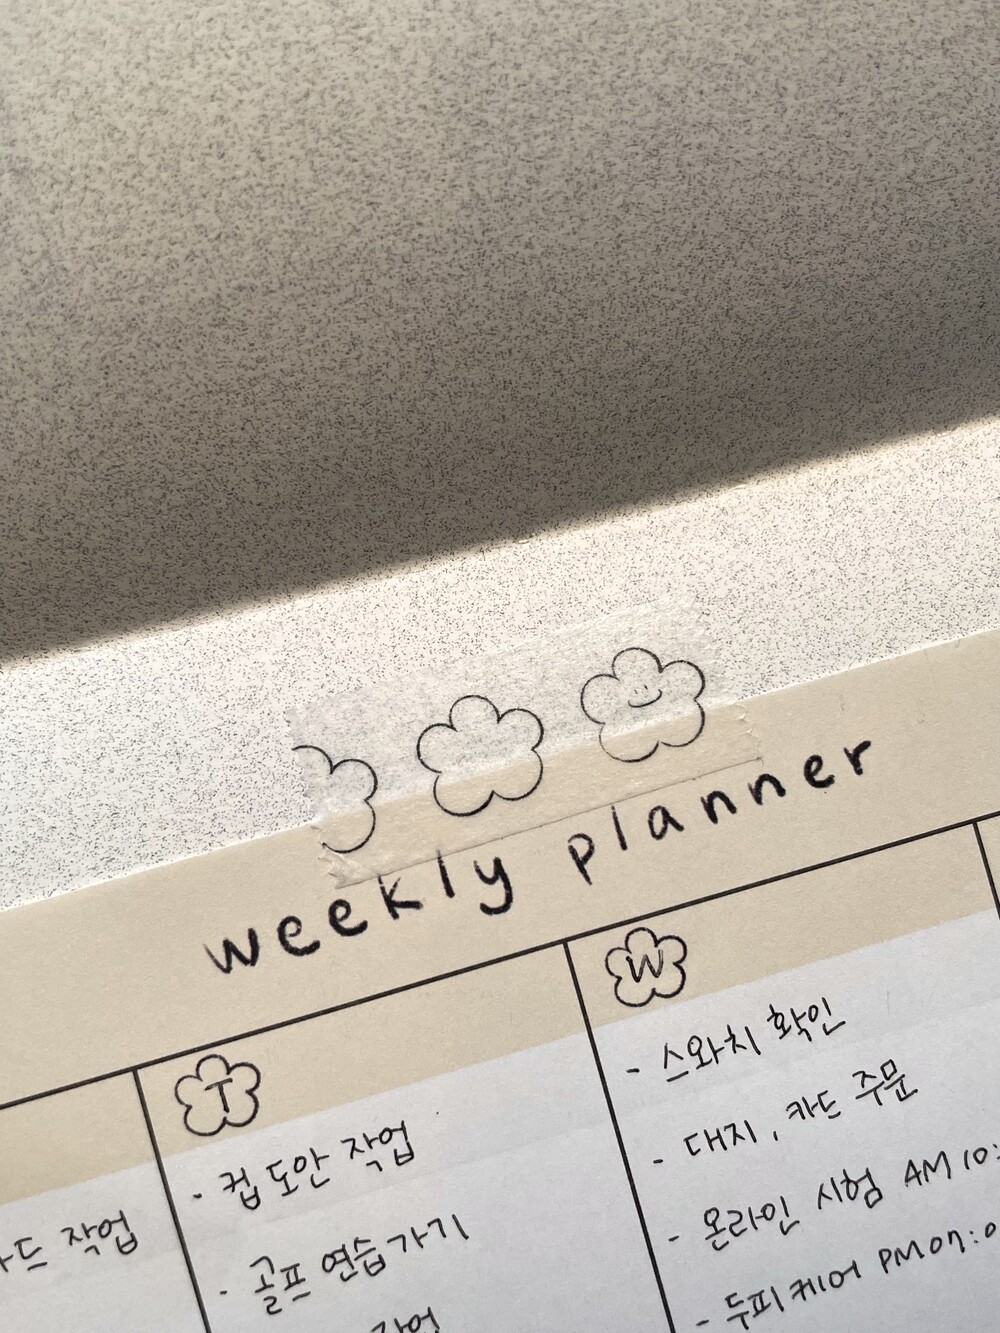 weekly planner
작업
T
- 컵 도안 작업
- 골프 연습 가기
작업
W
- 스와치 확인
- 대지, 카드 주문
- 온라인 시험 AM 10:
- 두피케어 PM 07:0